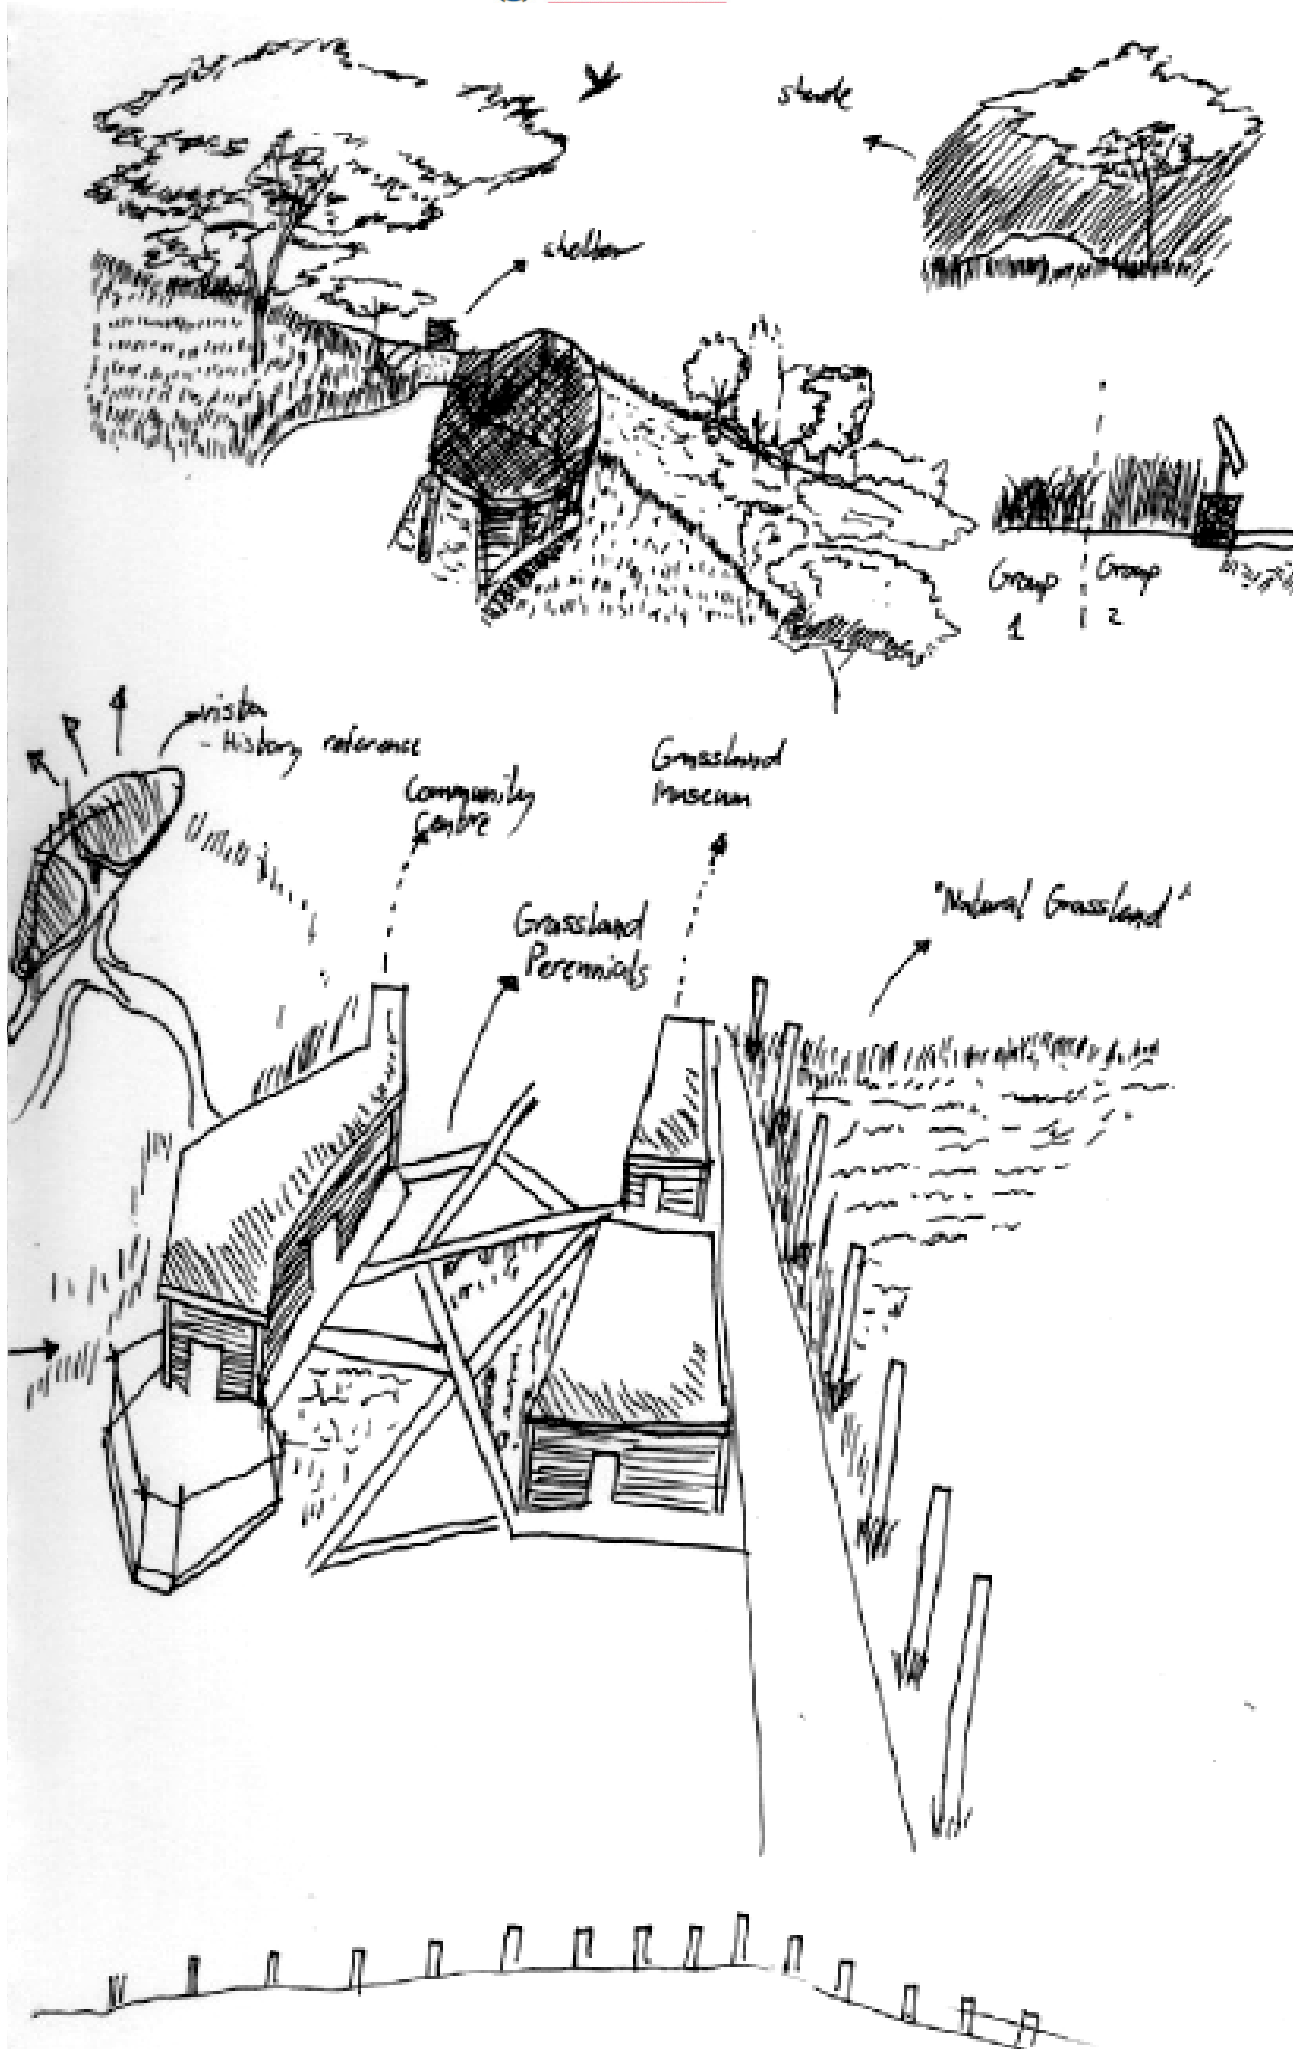 shade
shelter
Group
1
Group
2
vista
- History reference
Community
Centre
Grassland
Museum
Grassland
Perennials
"Natural Grassland"